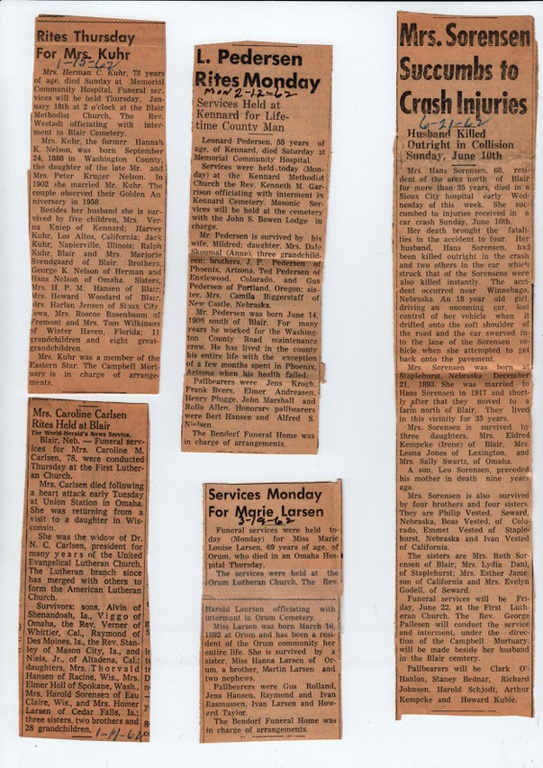 Rites Thursday
For Mrs. Kuhr
1-15-62
Mrs. Herman C. Kuhr, 73 years
of age, died Sunday at Memorial
Community Hospital. Funeral ser-
vices will be held Thursday, Jan-
uary 18th at 2 o'clock at the Blair
Methodist Church, The Rev.
Westadt officiating with inter-
ment is Blair Cemetery.
Mrs. Kuhr, the former Hannah
K. Nelson, was born September
24, 1888 in Washington County,
the daughter of the late Mr. and
Mrs. Peter Kruger Nelson. In
1902 she married Mr. Kuhr. The
couple observed their Golden An-
niversary in 1958.
Besides her husband she is sur-
vived by five children, Mrs. Ver-
na Kniep of Kennard; Harvey
Kuhr, Los Altos, California; Jack
Kuhr, Napierville, Illinois; Ralph
Kuhr, Blair and Mrs. Marjorie
Svendgaard of Blair. Brothers,
George N. Nelson of Herman and
Hans Nelson of Omaha. Sisters,
Mrs. H. P. M. Hansen of Blair,
Mrs. Howard Woodard of Blair,
Mrs. Harlan Jensen of Sioux City
Iowa, Mrs. Roscoe Rosenbaum of
Fremont and Mrs. Tom Wilkinson
of Winter Haven, Florida; 11
grandchildren and eight great-
grandchildren.
Mrs. Kuhr was a member of the
Eastern Star. The Campbell Mort-
uary is in charge of arrange-
ments.
Mrs. Caroline Carlsen
Rites Held at Blair
The World-Herald's News Service.
Blair, Neb. — Funeral serv-
ices for Mrs. Caroline M.
Carlsen, 78, were conducted
Thursday at the First Luther-
an Church.
Mrs. Carlsen died following
a heart attack early Tuesday
at Union Station in Omaha.
She was returning from a
visit to a daughter in Wis-
consin.
She was the widow of Dr.
N. C. Carlsen, president for
many years of the United
Evangelical Lutheran Church.
The Lutheran branch since
has merged with others to
form the American Lutheran
Church.
Survivors: sons, Alvin of
Shenandoah, Ia., Viggo of
Omaha, the Rev. Verner of
Whittier, Cal., Raymond of
Des Moines, Ia., the Rev. Stan-
ley of Mason City, Ia., and
Niels, Jr., of Altadena, Cal.;
daughters, Mrs. Thorvald
Hansen of Racine, Wis., Mrs.
Elmer Holl of Spokane, Wash.,
Mrs. Harold Sorensen of Eau
Claire, Wis., and Mrs. Homer
Larsen of Cedar Falls, Ia.;
three sisters, two brothers and
28 grandchildren.
L. Pedersen
Rites Monday
Mon 2-12-62
Services Held at
Kennard for Life-
time County Man
Leonard Pedersen, 55 years
of age, of Kennard, died Saturday at
Memorial Community Hospital.
Services were held today (Mon-
day) at the Kennard Methodist
Church the Rev. Kenneth M. Gar-
rison officiating with interment in
Kennard Cemetery. Masonic Ser-
vices will be held at the cemetery
with the John S. Bowen Lodge in
charge.
Mr. Pedersen is survived by his
wife, Mildred; daughter, Mrs. Dale
Skoumal (Anne), three grandchild-
ren; brothers, J. P. Pedersen of
Phoenix, Arizona, Ted Pedersen of
Englewood, Colorado, and Gus
Pedersen of Portland, Oregon; sis-
ter, Mrs. Camila Biggerstaff of
New Castle, Nebraska.
Mr. Pedersen was born June 14,
1906 south of Blair. For many
years he worked for the Washing-
ton County Road maintenance
crew. He has lived in the county
his entire life with the exception
of a few months spent in Phoenix,
Arizona when his health failed.
Pallbearers were Jens Krogh,
Frank Byers, Elmer Andreasen,
Henry Plugge, John Marshall and
Rollo Allen. Honorary pallbearers
were Bert Hansen and Alfred S.
Nielsen.
The Bendorf Funeral Home was
in charge of arrangements.
Services Monday
For Marie Larsen
3-19-62
Funeral services were held to-
day (Monday) for Miss Marie
Louise Larsen, 69 years of age, of
Orum, who died in an Omaha Hos-
pital Thursday.
The services were held at the
Orum Lutheran Church, The Rev.
Harold Laursen officiating with
interment in Orum Cemetery.
Miss Larsen was born March 16,
1892 at Orum and has been a resi-
dent of the Orum community her
entire life. She is survived by a
sister, Miss Hanna Larsen of Or-
um, a brother, Martin Larsen and
two nephews.
Pallbearers were Gus Rolland,
Jens Hansen, Raymond and Ivan
Rasmussen, Ivan Larsen and How-
ard Taylor.
The Bendorf Funeral Home was
in charge of arrangements.
Mrs. Sorensen
Succumbs to
Crash Injuries
6-21-62
Husband Killed
Outright in Collision
Sunday, June 10th
Mrs. Hans Sorensen, 68, resi-
dent of the area north of Blair
for more than 35 years, died in a
Sioux City hospital early Wed-
nesday of this week. She suc-
cumbed to injuries received in a
car crash Sunday, June 10th.
Her death brought the fatali-
ties in the accident to four. Her
husband, Hans Sorensen, had
been killed outright in the crash
and two others in the car which
struck that of the Sorensens were
also killed instantly. The acci-
dent occurred near Winnebago,
Nebraska. An 18 year old girl,
driving an oncoming car, lost
control of her vehicle when it
drifted onto the soft shoulder of
the road and the car swerved in-
to the lane of the Sorensen ve-
hicle when she attempted to get
back onto the pavement.
Mrs. Sorensen was born at
Staplehurst, Nebraska December
21, 1893. She was married to
Hans Sorensen in 1917 and short-
ly after that they moved to a
farm north of Blair. They lived
in this vicinity for 35 years.
Mrs. Sorensen is survived by
three daughters, Mrs. Eldred
Kempcke (Irene) of Blair, Mrs.
Leona Jones of Lexington, and
Mrs. Sally Swartz, of Omaha.
A son, Leo Sorensen, preceded
his mother in death nine years
ago.
Mrs. Sorensen is also survived
by four brothers and four sisters.
They are Philip Vested, Seward,
Nebraska, Boas Vested, of Colo-
rado, Emmet Vested of Staple-
hurst, Nebraska and Ivan Vested
of California.
The sisters are Mrs. Ruth Sor-
ensen of Blair; Mrs. Lydia Dahl,
of Staplehurst; Mrs. Esther Jame-
son of California and Mrs. Evelyn
Godell, of Seward.
Funeral services will be Fri-
day, June 22, at the First Luth-
eran Church. The Rev. George
Pallesen will conduct the service
and interment, under the direc-
tion of the Campbell Mortuary,
will be made beside her husband
in the Blair cemetery.
Pallbearers will be Clark O'-
Hanlon, Staney Bednar, Richard
Johnson, Harold Schjodt, Arthur
Kempcke and Howard Kubie.